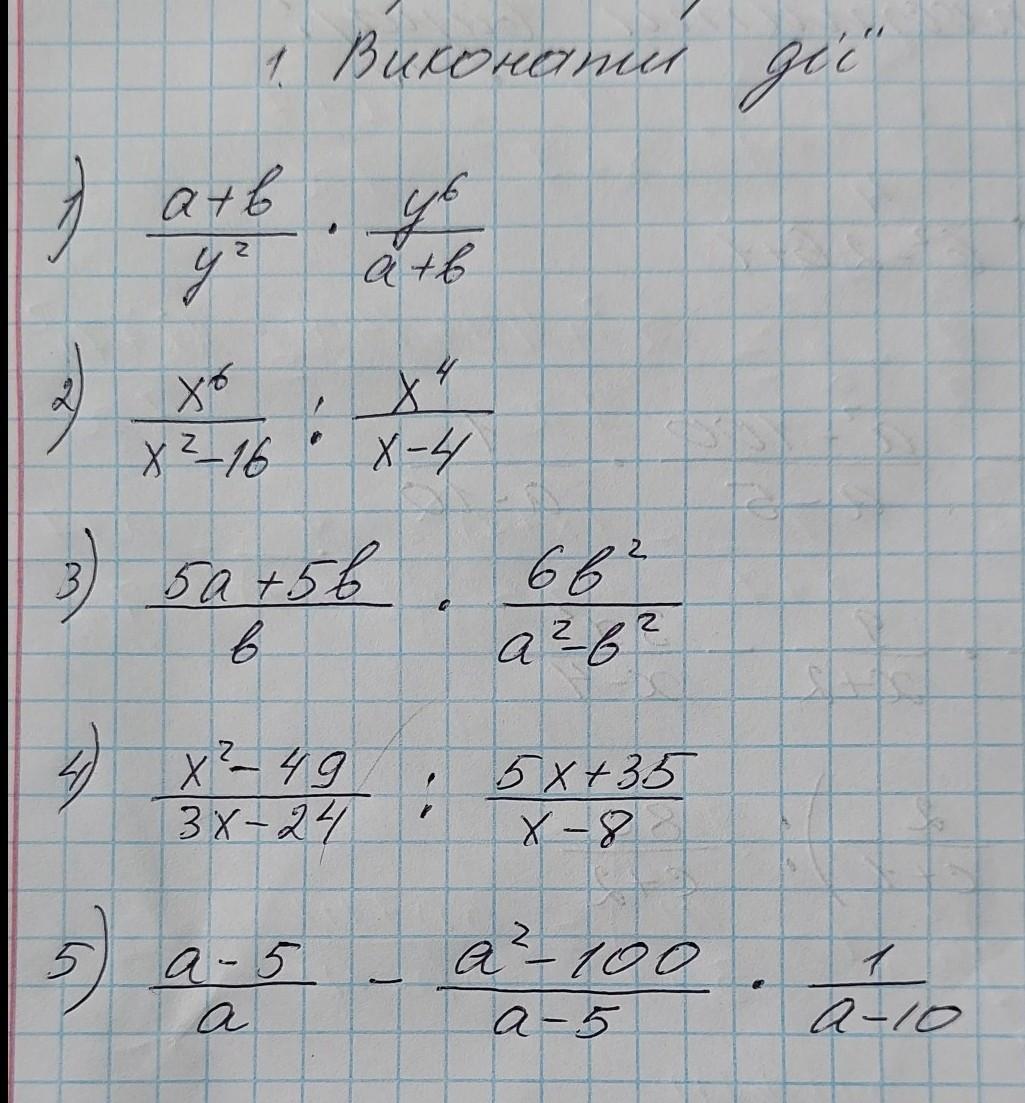 1. Виконати дії
1) (a+b)/y² · y⁶/(a+b)
2) x⁶/(x²-16) : x⁴/(x-4)
3) (5a+5b)/b · 6b²/(a²-b²)
4) (x²-49)/(3x-24) : (5x+35)/(x-8)
5) (a-5)/a - (a²-100)/(a-5) · 1/(a-10)